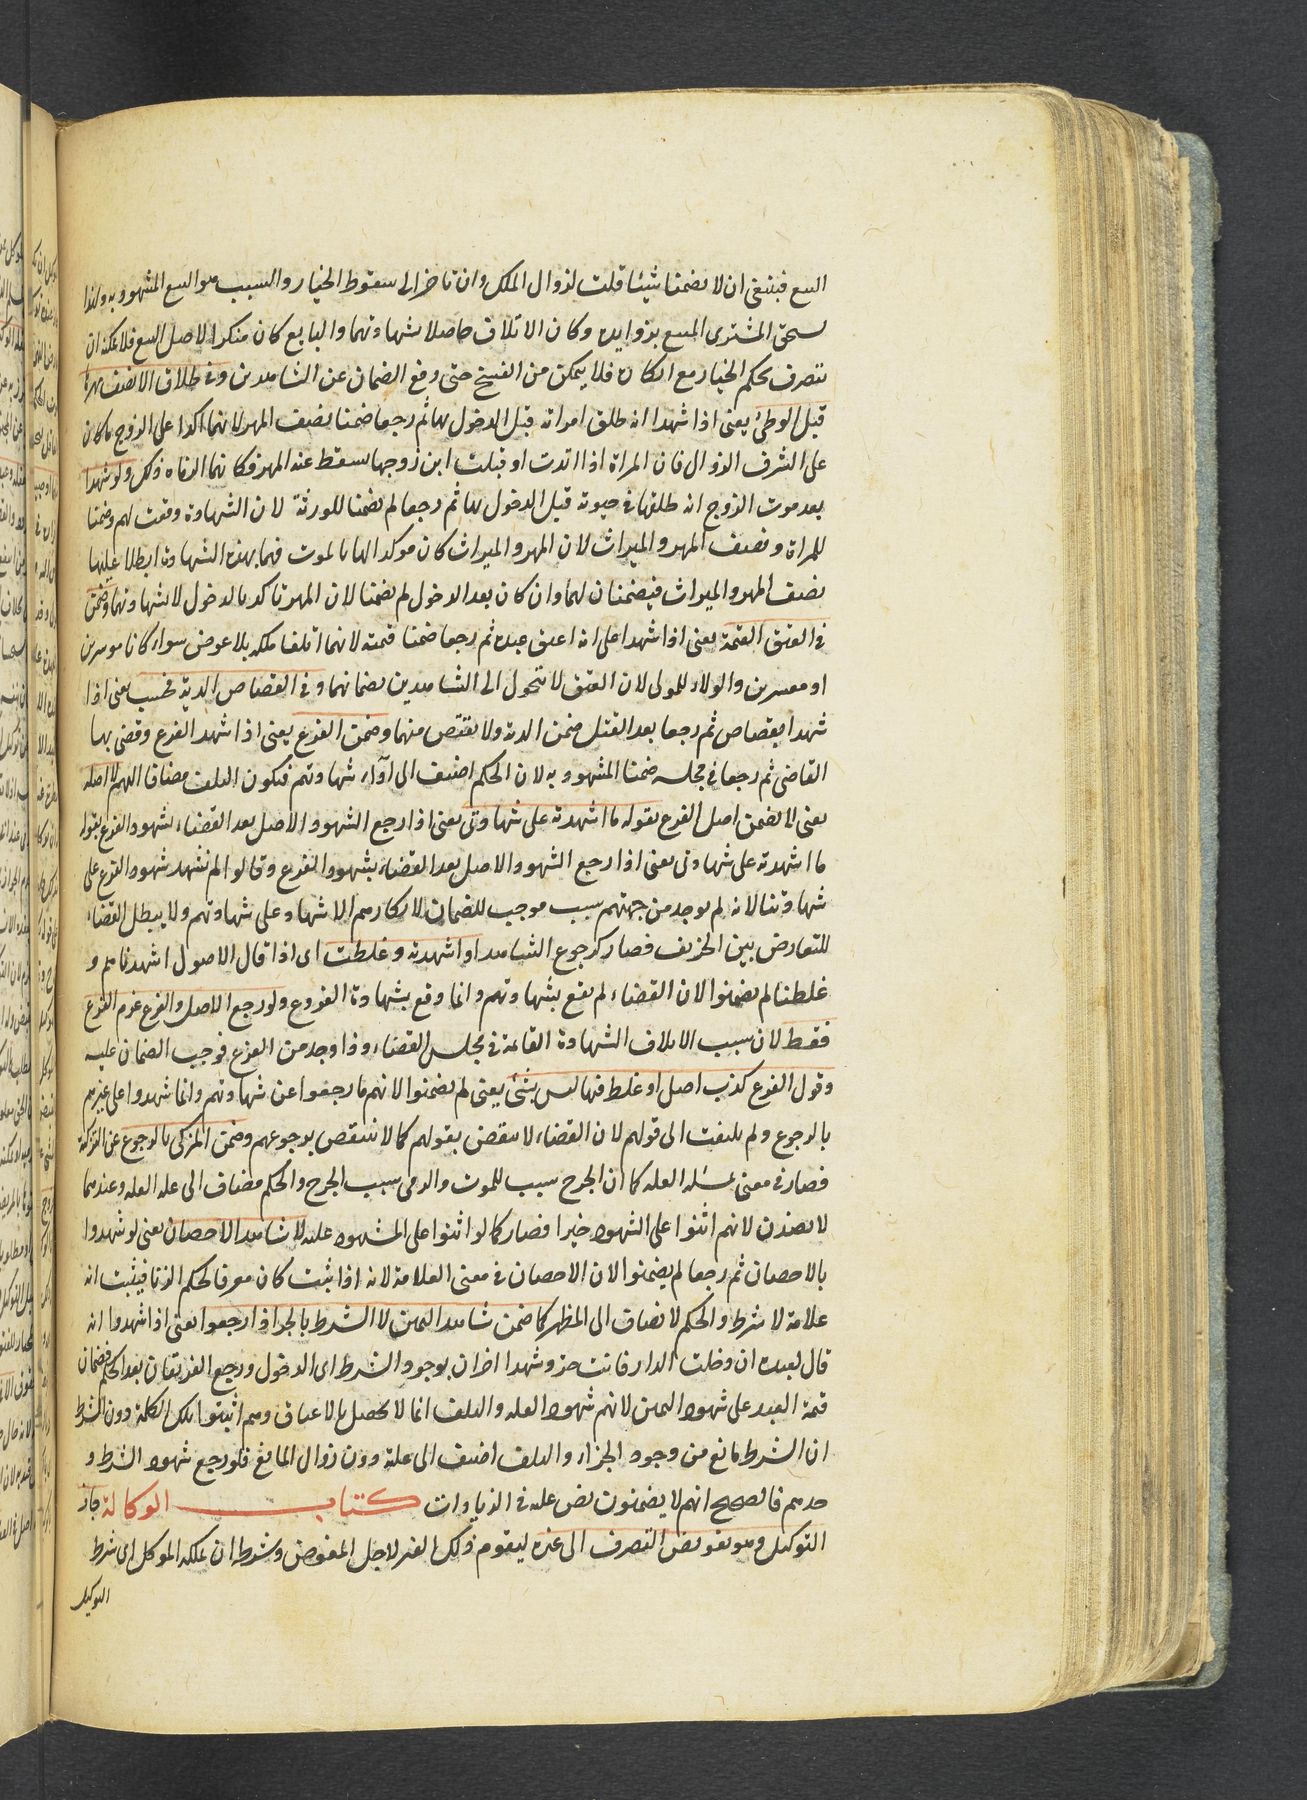 البيع فينبغى ان لا يضمنا شيئا قلت لزوال الملك وان تاخر الى سقوط الخيار والسبب هو البيع المشهود به ولهذا
يستحق المشترى المبيع بزوايده وكان الاتلاف حاصلا بشهادتهما والبايع كان منكرا لاصل البيع فلا يمكنه ان
يتصرف بحكم الخيار مع انكاره فلا يمكن من الفسخ حتى دفع الضمان عن الشاهدين وفى طلاق الا نصف مهرها
قبل الوطئ يعنى اذا شهدا انه طلق امراته قبل الدخول بها ثم رجعا ضمنا نصف المهر لانهما اكدا على الزوج ما كان
على الشرف الزوال فان المراة اذا ارتدت او قبلت ابن زوجها سقط عنه المهر فكانهما الزماه ذلك ولو شهدا
بعد موت الزوج انه طلقها فى حيوته قبل الدخول بها ثم رجعا لم يضمنا للورثة لان الشهادة وقعت لهم وضمنا
للمراة ونصف المهر والميراث لان المهر والميراث كان موكدا لها بالموت فهما بهذه الشهادة ابطلا عليها
نصف المهر والميراث فيضمنان لهما وان كان بعد الدخول لم يضمنا لان المهر تاكد بالدخول لا بشهادتهما وضمن
فى العتق القيمة يعنى اذا شهدا على انه اعتق عبده ثم رجعا ضمنا قيمته لانهما اتلفا ملكه بلا عوض سواء كانا موسرين
او معسرين والولاء للمولى لان العتق لا يتحول الى الشاهدين بضمانهما وفى القصاص الدية فحسب يعنى اذا
شهدا بقصاص ثم رجعا بعد القتل ضمن الدية ولا يقتص منهما وضمن الفرع يعنى اذا شهد الفرع وقضى بها
القاضى ثم رجعا فى مجلسه ضمنا المشهود به لان الحكم اضيف الى اداء شهادتهم فيكون التلف مضافا اليهم لا اصله
يعنى لا يضمن اصل الفرع بقوله ما اشهدته على شهادتى يعنى اذا رجع الشهود الاصل بعد القضاء بشهود الفرع بقوله
ما اشهدته على شهادتى يعنى اذا رجع الشهود الاصل بعد القضاء بشهود الفرع وقالوا لم نشهد شهود الفرع على
شهادتنا لانه لم يوجد من جهتهم سبب موجب للضمان لانكارهم الاشهاد على شهادتهم ولا يبطل القضاء
للتعارض بين الخبرين فصار كرجوع الشاهد او اشهدته وغلطت اى اذا قال الاصول اشهدناهم و
غلطنا لم يضمنوا لان القضاء لم يقع بشهادتهم وانما وقع بشهادة الفروع ولو رجع الاصل والفرع غرم الفرع
فقط لان سبب الاتلاف الشهادة القائمة فى مجلس القضاء وذا وجد من الفرع فوجب الضمان عليه
وقول الفرع كذب اصلى او غلط فيها ليس بشئ يعنى لم يضمنوا لانهم ما رجعوا عن شهادتهم وانما شهدوا على غيرهم
بالرجوع ولم يلتفت الى قولهم لان القضاء لا ينقض بقولهم كما لا ينتقض برجوعهم وضمن المزكى بالرجوع عن التزكية
فصار فى معنى علة العلة كما ان الجرح سبب للموت والرمى سبب الجرح والحكم مضاف الى علة العلة وعندهما
لا يضمنون لانهم اثنوا على الشهود خيرا فصار كما لو اثنوا على المشهود عليه لا شاهد الاحصان يعنى لو شهدوا
بالاحصان ثم رجعا لم يضمنوا لان الاحصان فى معنى العلامة لانه اذا ثبت كان معرفا لحكم الزنا فيثبت انه
علامة لا شرط والحكم لا يضاف الى المظهر كما ضمن شاهد اليمين لا الشرط بالجر اذا رجعوا يعنى اذا شهدوا انه
قال لعبده ان دخلت الدار فانت حر وشهدا اخران بوجود الشرط اى الدخول ورجع الفريقان بعد الحكم فضمان
قيمة العبد على شهود اليمين لانهم شهود العلة والتلف انما لا يحصل بالاعتاق وهم اثبتوا تلك الكلمة دون الشرط
ان الشرط مانع من وجود الجزاء والتلف اضيف الى علة دون زوال المانع فلو رجع شهود الشرط و
حدهم فالصحيح انهم لا يضمنون نص عليه فى الزيادات كتاب الوكالة جاز
التوكيل وهو تفويض التصرف الى غيره ليقوم ذلك الغير لاجل المفوض وشرطه ان يملكه الموكل اى شرط
التوكيل